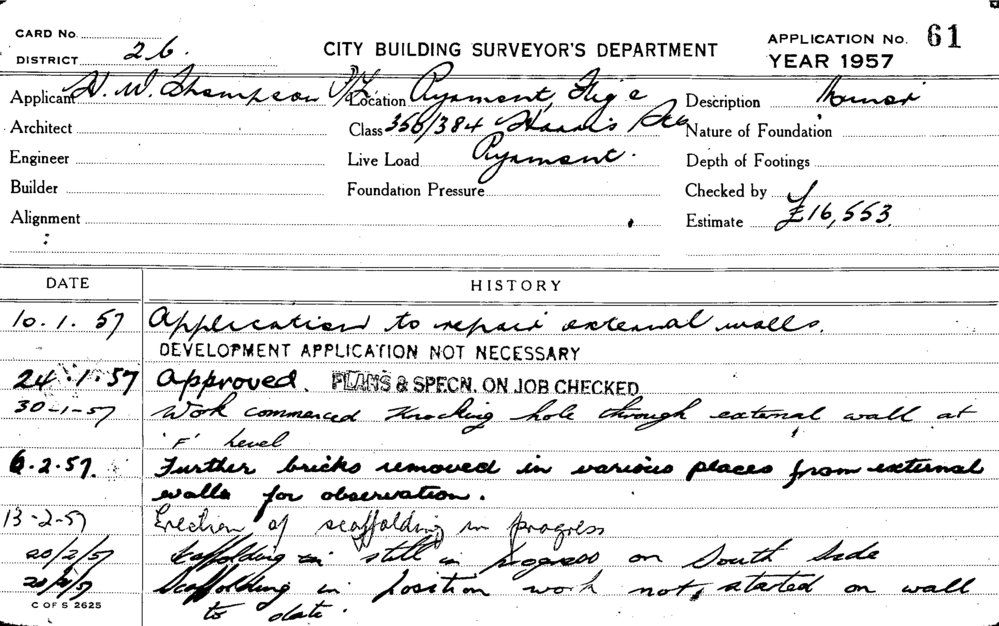 CARD No.
DISTRICT 26.
CITY BUILDING SURVEYOR'S DEPARTMENT
APPLICATION No. 61
YEAR 1957
Applicant H. W. Thompson P/L Location Pyrmont, Description
Architect Class 356/384 Harris Nature of Foundation
Engineer Live Load Pyrmont. Depth of Footings
Builder Foundation Pressure Checked by
Alignment Estimate £16,553.
DATE HISTORY
10.1.57 Application to repair external walls.
DEVELOPMENT APPLICATION NOT NECESSARY
24.1.57 Approved. PLANS & SPECN. ON JOB CHECKED
30-1-57 Work commenced Knocking hole through external wall at
'F' Level
6.2.57. Further bricks removed in various places from external
walls for observation.
13-2-57 Erection of scaffolding in progress
20/2/57 Scaffolding still in progress on South Side
Scaffolding in position work not started on wall
to date.
C OF S 2625